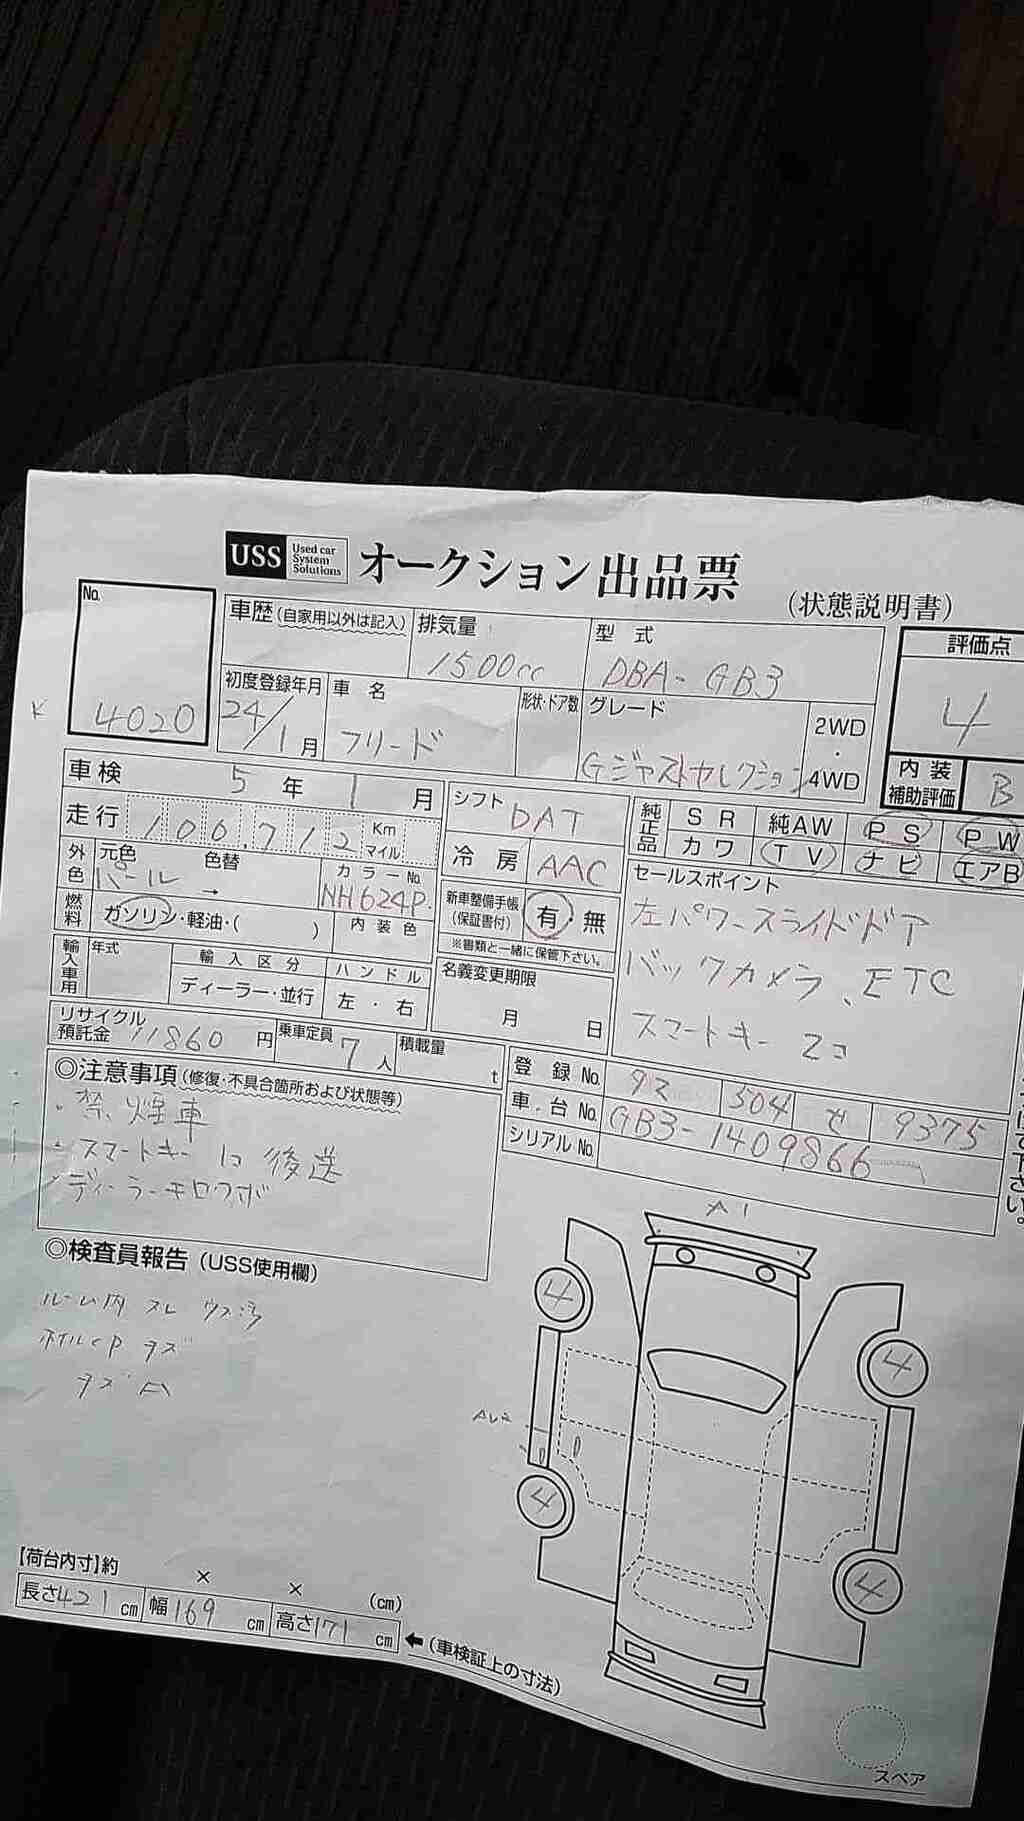 USS Used car System Solutions オークション出品票
(状態説明書)
No. 4020
車歴(自家用以外は記入) 排気量 1500cc 型式 DBA-GB3
評価点 4
初度登録年月 24/1月 車名 フリード 形状・ドア数 グレード Gジャストセレクション 2WD・4WD
内装補助評価 B
車検 5年1月 シフト DAT 純正品 SR 純AW PS PW
走行 106,712 Km マイル 冷房 AAC カワ TV ナビ エアB
外色 元色 パール 色替 → カラーNo. NH624P
燃料 ガソリン・軽油・( ) 内装色
新車整備手帳(保証書付) 有・無
※書類と一緒に保管下さい。
セールスポイント
左パワースライドドア
バックカメラ、ETC
スマートキー 2コ
輸入車用 年式 輸入区分 ハンドル
ディーラー・並行 左・右
名義変更期限
月 日
リサイクル預託金 11860円 乗車定員 7人 積載量 t
登録No. 92 504 せ 9375
車台No. GB3-1409866
シリアルNo.
◎注意事項(修復・不具合箇所および状態等)
・禁煙車
・スマートキー 1コ 後送
・ディーラー
◎検査員報告(USS使用欄)
ルーム内 スレ ウス汚
ホイルcp キズ
キズ A
A1
4
4
4
4
スペア
【荷台内寸】約 × × (cm)
長さ421cm 幅169cm 高さ171cm ←(車検証上の寸法)